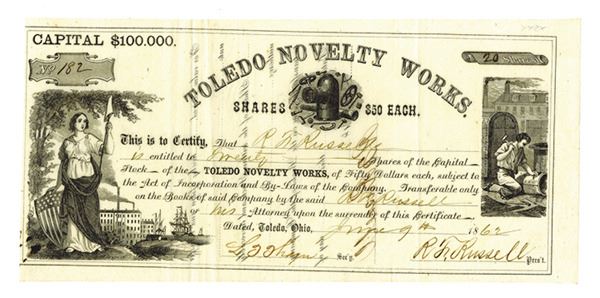 CAPITAL $100.000.
No 182
20 Shares
TOLEDO NOVELTY WORKS.
SHARES $50 EACH.
This is to Certify, That R. F. Russell
is entitled to Twenty Shares of the Capital
Stock of the TOLEDO NOVELTY WORKS, of Fifty Dollars each, subject to
the Act of Incorporation and By-Laws of the Company. Transferable only
on the Books of said Company by the said R. F. Russell
or his Attorney upon the surrender of this Certificate
Dated, Toledo, Ohio, June 9th 1862
Sec'y. R. F. Russell Pres't.